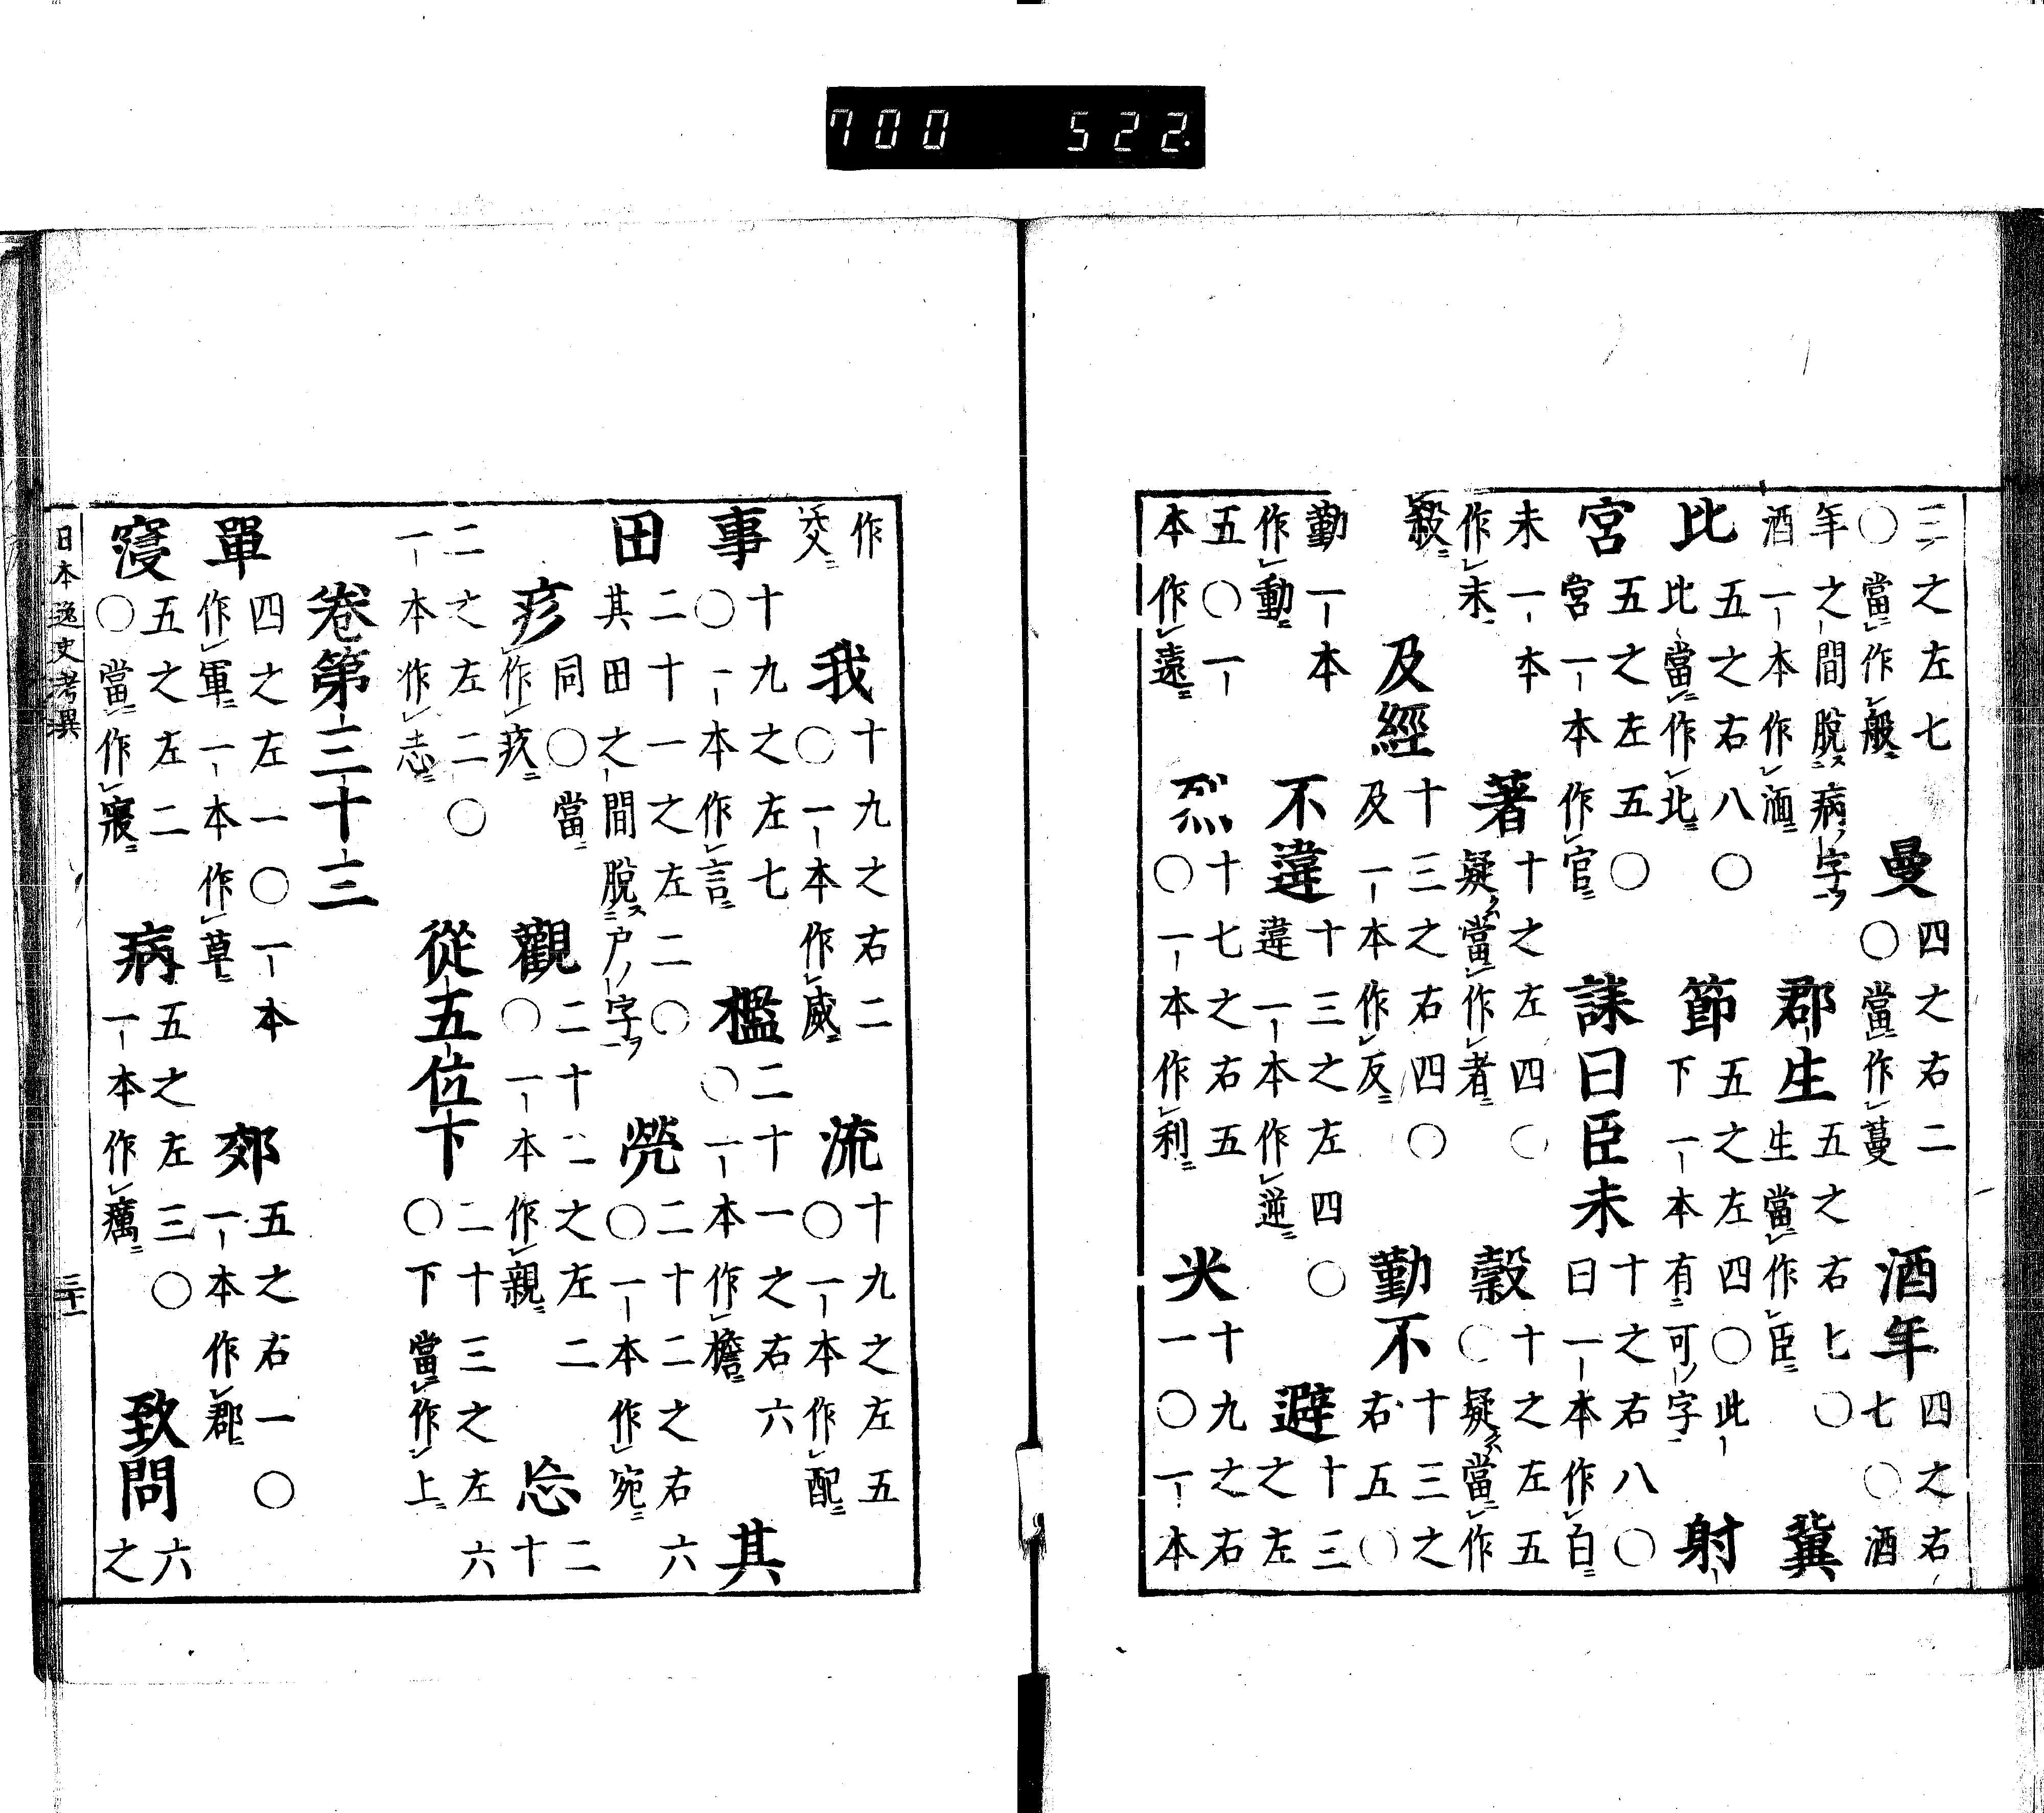 三之左七○當作般曼四之右二○當作蔓酒年四之右七○酒
年之間脫病字酒一本作湎郡生五之右七○生當作臣冀
比五之右八○比當作北節五之左四○此下一本有可字射
宮五之左五○宮一本作官誄曰臣未十之右八○曰一本作白
未一本作末著十之左四○疑當作者穀十之左五○疑當作
穀及經十三之右四○及一本作反勤不十三之右五○
勤一本作動不違十三之左四○違一本作逆避十三之左
五○一本作遠烈十七之右五○一本作利火十九之右一○一本
作災我十九之右二○一本作威流十九之左五○一本作配
事十九之左七○一本作言檻二十一之右六○一本作檐其
田二十一之左二○其田之間脫戸字焭二十二之右六○一本作宛
疹同○當作疚觀二十二之左二○一本作親忩二十
二之左二○一本作志從五位下二十三之左六○下當作上
卷第三十三
單四之左一○一本作軍一本作草郊五之右一○一本作郡
寑五之左二○當作寢病五之左三○一本作癘致問六之
日本逸史考異 三十一
700 522